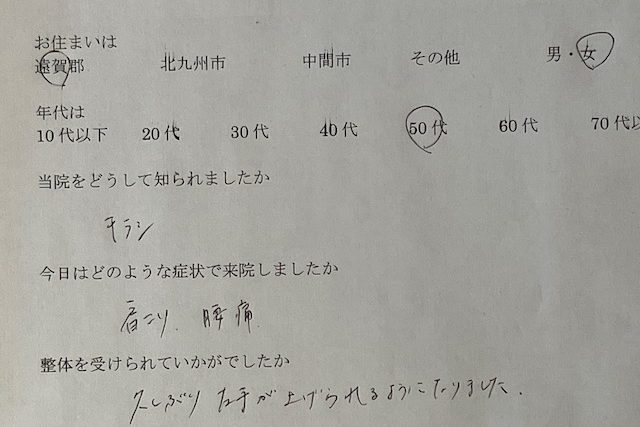 お住まいは
遠賀郡 北九州市 中間市 その他 男・女
年代は
10代以下 20代 30代 40代 50代 60代 70代以
当院をどうして知られましたか
チラシ
今日はどのような症状で来院しましたか
肩こり、腰痛
整体を受けられていかがでしたか
久しぶり 左手が上げられるようになりました.